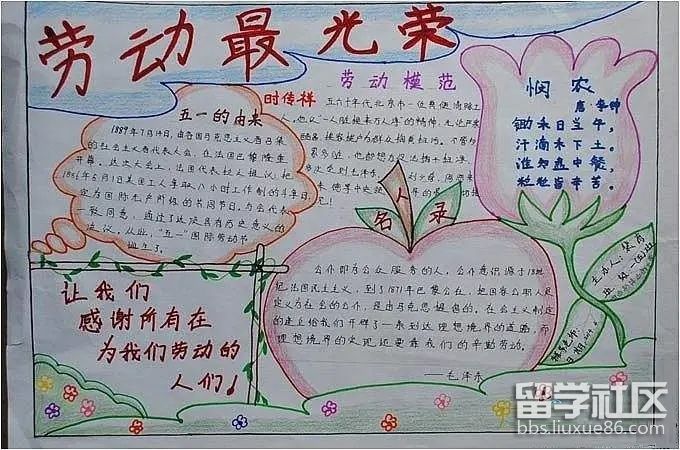 劳动最光荣
五一的由来
1889年7月14日,由各国马克思主义者召集
的社会主义者代表大会,在法国巴黎隆重
开幕。这次大会上,法国代表拉人提议:把
1886年5月1日美国工人争取八小时工作制的斗争日,
定为国际无产阶级的共同节日。与会代表
一致同意,通过了这项具有历史意义的
决议。从此,"五一"国际劳动节
诞生了。
劳动模范
时传祥
五六十年代北京市一位粪便清除工
人。他以"一人脏换来万人净"的精神,无论严寒
悯农
唐·李绅
锄禾日当午,
汗滴禾下土。
谁知盘中餐,
粒粒皆辛苦。
名人录
公仆即为公众服务的人,公仆意识源于18世
纪法国民主主义,到了1871年巴黎公社,把国家公职人员
定义为社会的公仆,是由马克思提出的,在社会主义制定
的建立给我们开辟了一条到达理想境界的道路,而
理想境界的实现还要靠我们的辛勤劳动。
——毛泽东
让我们
感谢所有在
为我们劳动的
人们!
主办人:
留学社区
bbs.liuxue86.com